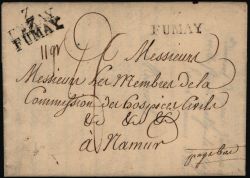 7
FUMAY
FUMAY
Messieurs
Messieurs les Membres de la
Commission des hospices Civils
& & &
à Namur